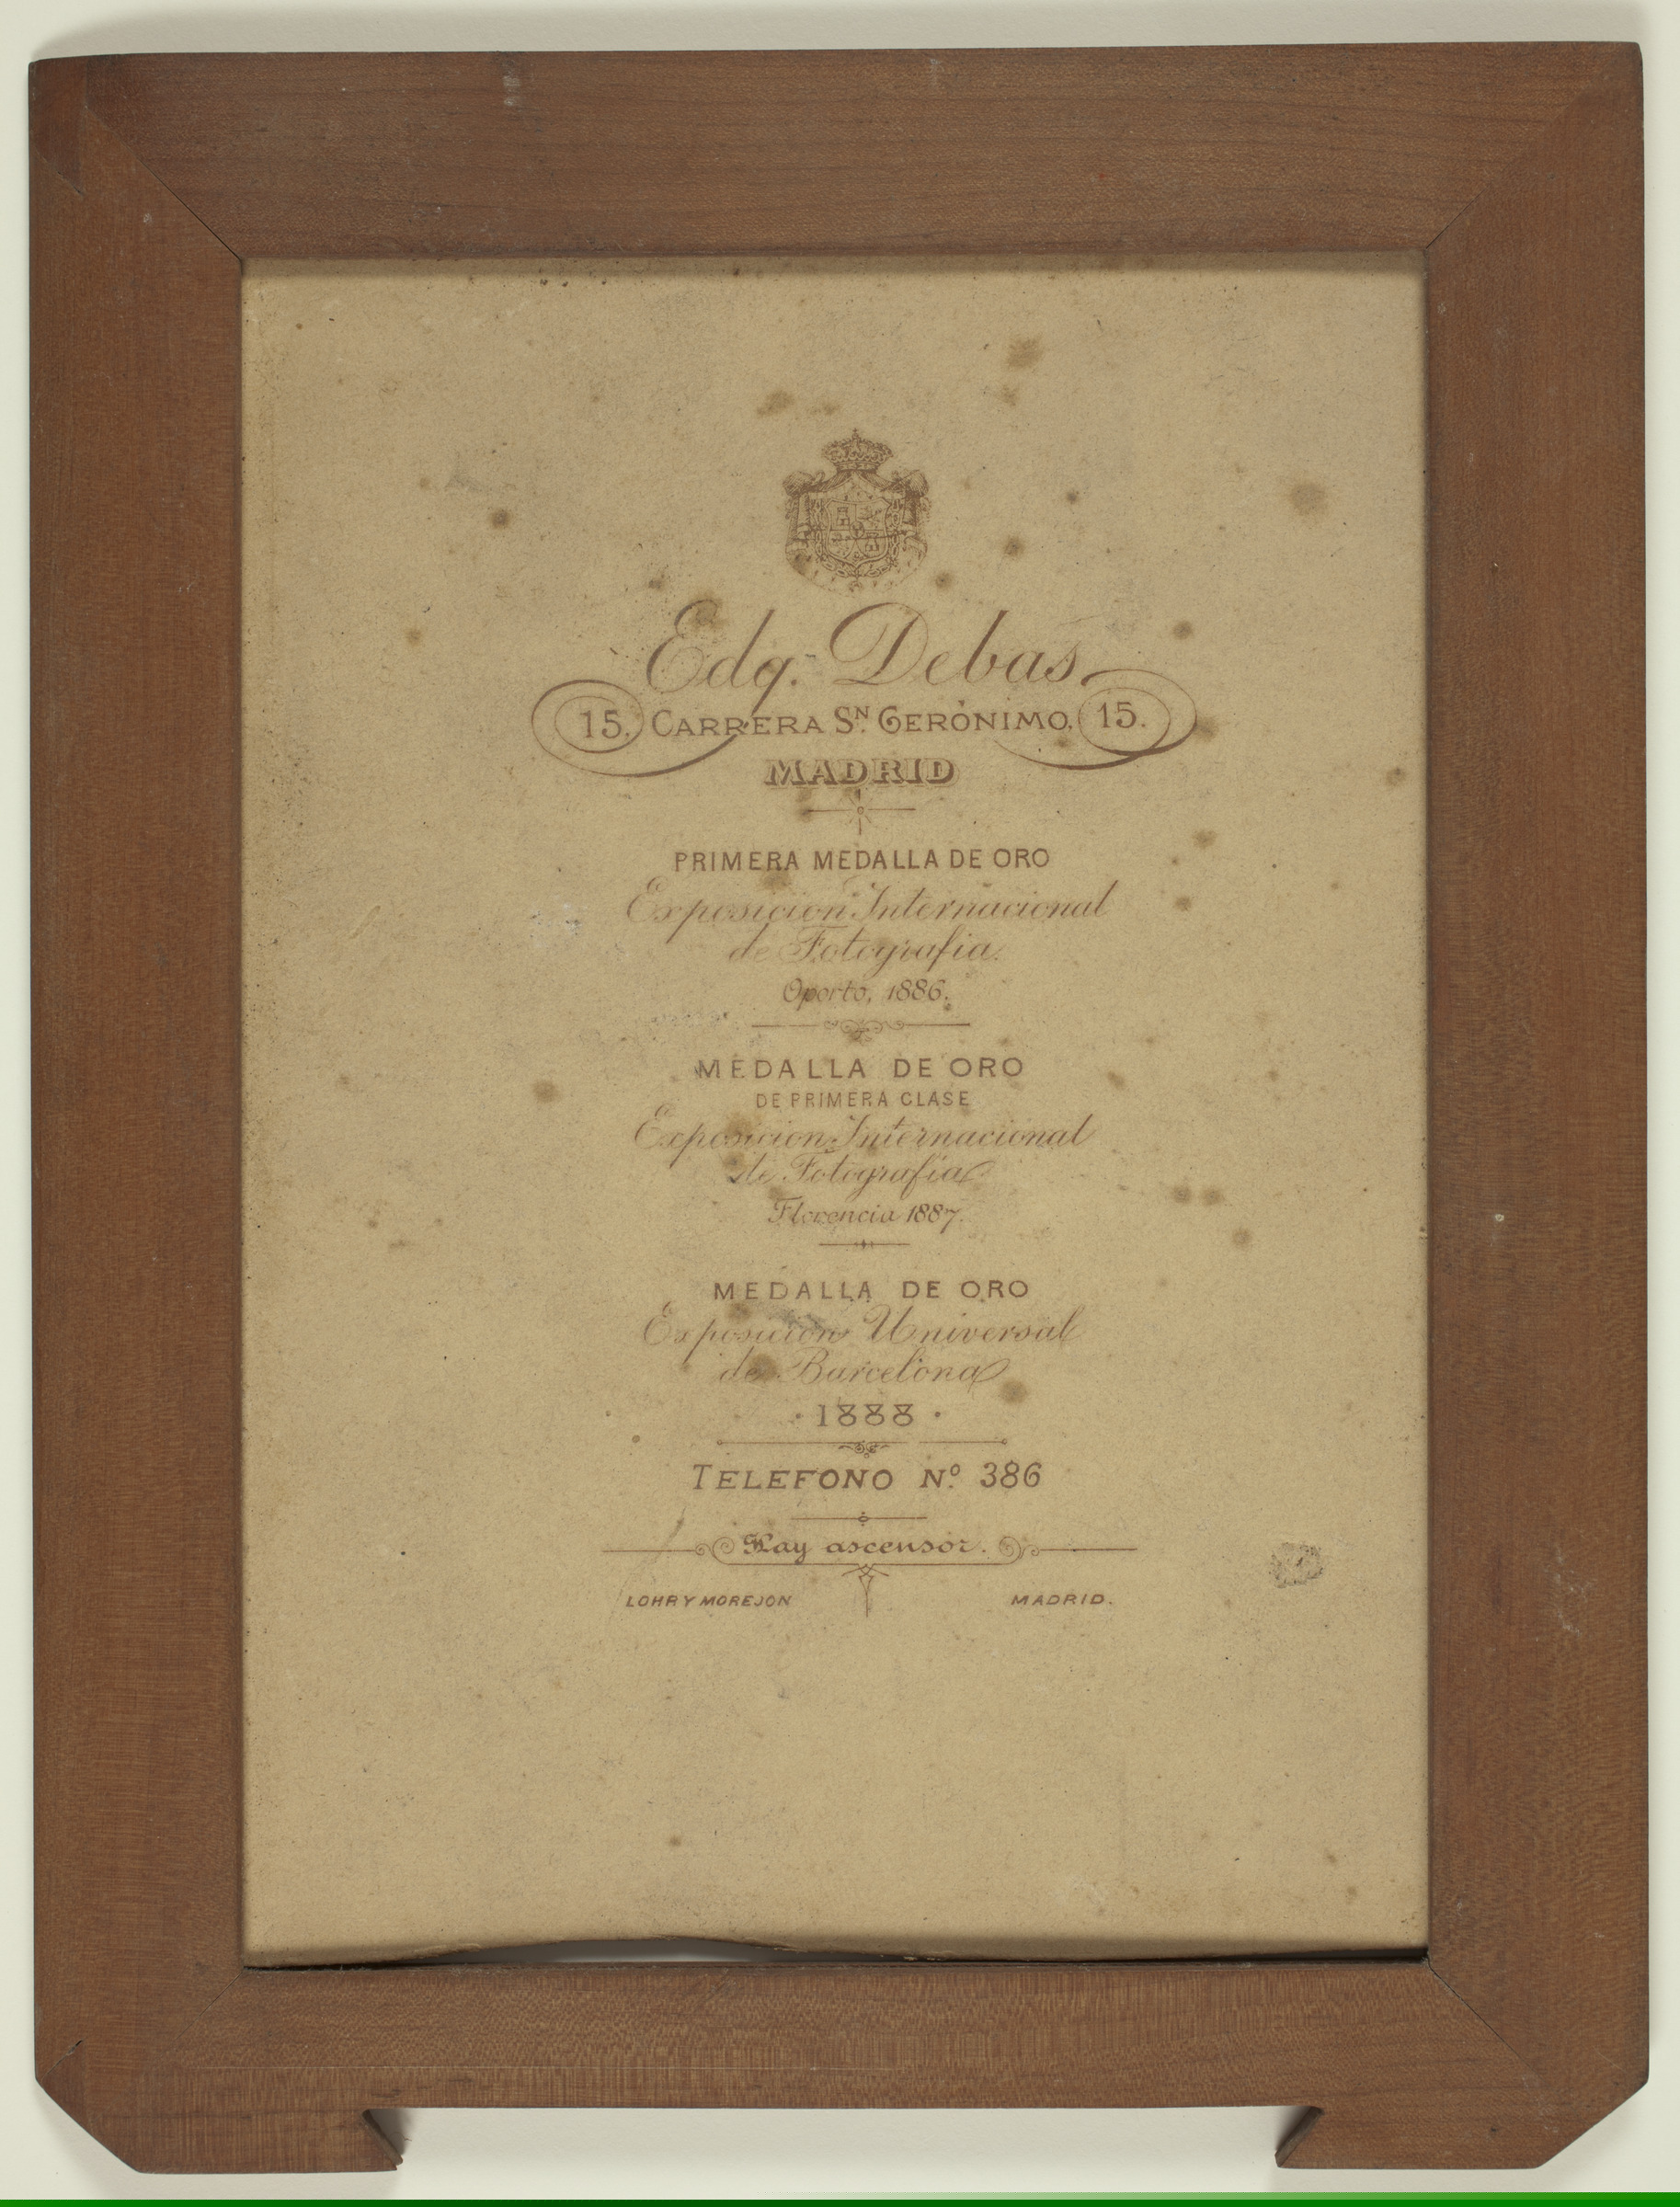 Edg. Debas
15. CARRERA SN. GERÓNIMO. 15.
MADRID
PRIMERA MEDALLA DE ORO
Exposicion Internacional
de Fotografia.
Oporto, 1886.
MEDALLA DE ORO
DE PRIMERA CLASE
Exposicion Internacional
de Fotografia
Florencia 1887.
MEDALLA DE ORO
Exposicion Universal
de Barcelona
· 1888 ·
TELEFONO Nº. 386
Hay ascensor.
LOHR Y MOREJON MADRID.